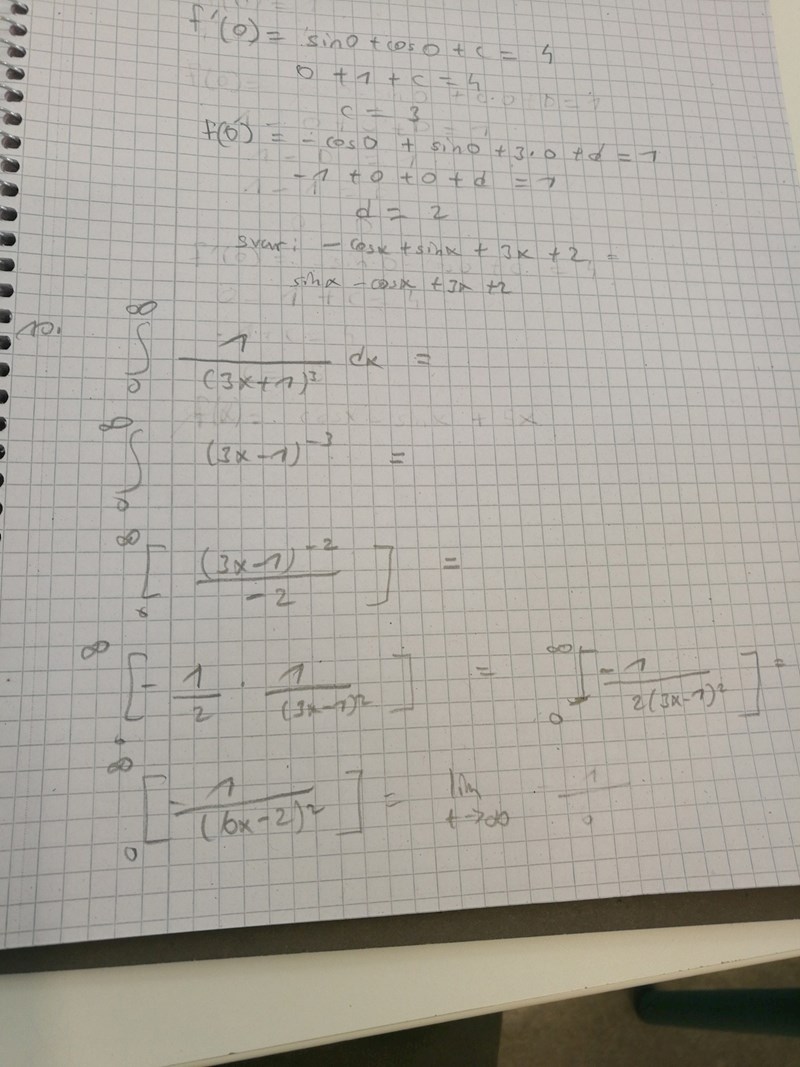 f'(0) = sin0 + cos0 + c = 4
0 + 1 + c = 4
c = 3
f(0) = -cos0 + sin0 + 3·0 + d = 1
-1 + 0 + 0 + d = 1
d = 2
svar: -cosx + sinx + 3x + 2 =
sinx - cosx + 3x + 2
10. ∫₀^∞ 1/(3x+1)³ dx =
∫₀^∞ (3x-1)⁻³ =
∞[ (3x-1)⁻²/-2 ] =
∞[ -1/2 · 1/(3x-1)² ] = ₀^∞[ -1/2(3x-1)² ] =
₀^∞[ -1/(6x-2)² ] = lim t→∞ - 1/